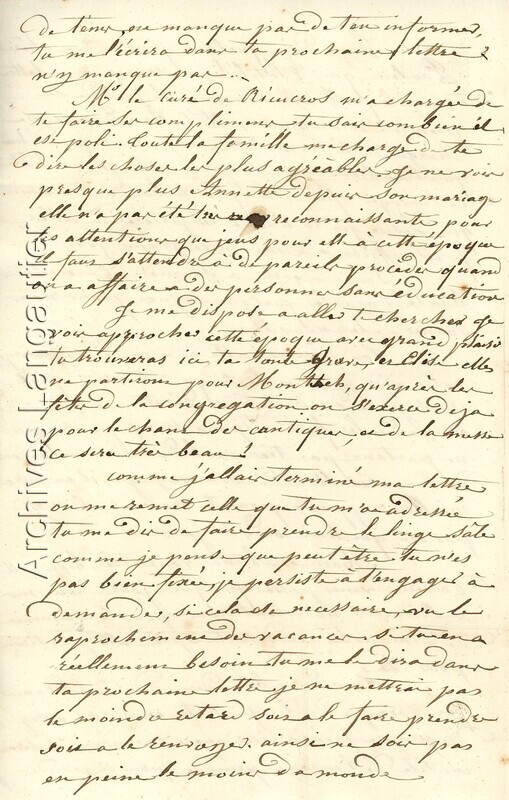 de tems, ne manque pas de t'en informer,
tu me l'écrira dans ta prochaine lettre
n'y manque pas...
Mr le Curé de Rieucros m'a chargée de
te faire ses compliments tu sais combien il
est poli. Toute la famille me charge de te
dire les choses les plus agréables. Je ne vois
presque plus Annette depuis son mariage
elle n'a pas été très reconnaissante pour
les attentions que j'eus pour elle à cette époque
il faut s'attendre à de pareils procédés quand
on a affaire a des personnes sans éducation
Je me dispose a aller te chercher je
vois approcher cette époque avec grand plaisir
tu trouveras ici ta tante et Elise elles
ne partirons pour qu'après les
fêtes de la congregation on s'exerce deja
pour le chant des cantiques, et de la messe
ce sera très beau!
comme j'allais terminé ma lettre
on me remet celle que tu m'as adressée
tu me dis de faire prendre le linge sale
comme je pense que peut être tu n'es
pas bien fixée, je persiste à t'engager à
demander, si cela est necessaire, vu le
raprochement des vacances, si tu en a
réellement besoin tu me le dira dans
ta prochaine lettre, je ne mettrai pas
le moindre retard soit a le faire prendre
soit a le renvoyer. ainsi ne sois pas
en peine le moins du monde
Archives Langautier